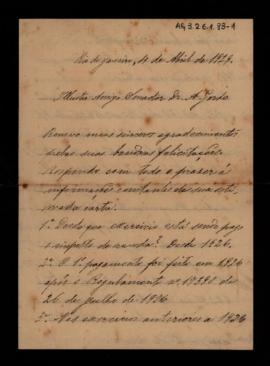 AG 3.2.6.1.93-1
Rio de Janeiro, 4 de Abril de 1929.
Illustre Amigo Senador Dr. A. Gordo
Renovo meus sinceros agradecimentos
pelas suas bondosas felicitações.
Respondo com todo o prazer á
informações constantes da sua esti-
mada carta:
1º Desde que exercicio está sendo pago
o imposto de renda? Desde 1926.
2º O 1º pagamento foi feito em 1926
após o Regulamento nº de
26 de Julho de 1926
3º Nos exercicios anteriores a 1926